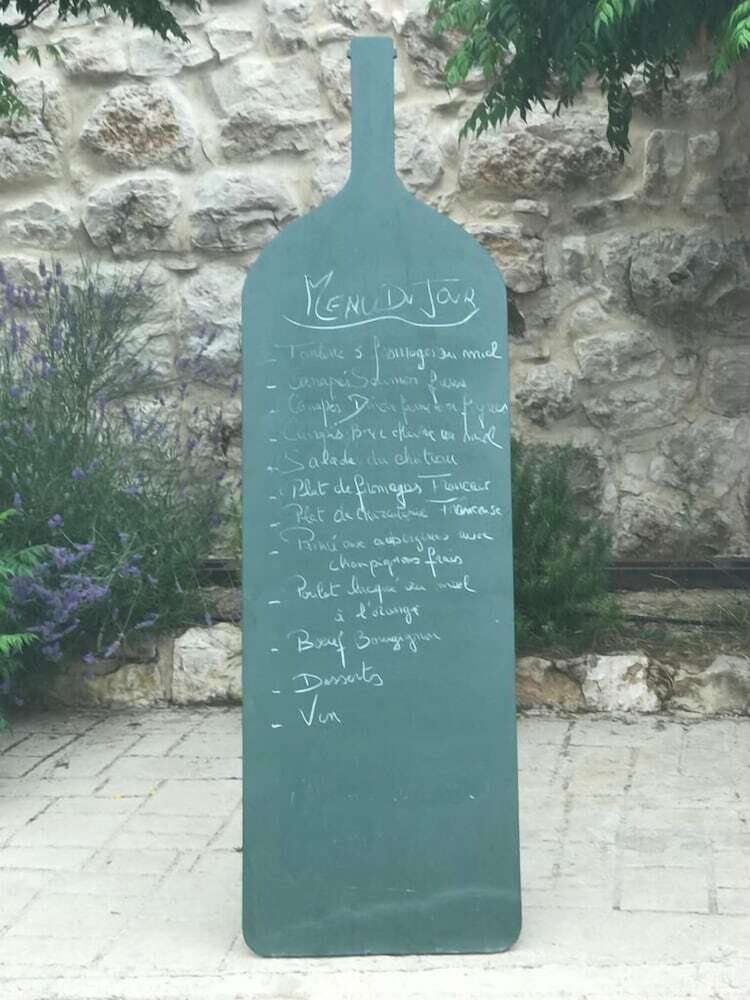 Menu Du Jour
- Tartine 3 fromages au miel
- Canapés Saumon fumé
- Canapés
- Canapés chèvre au miel
- Salade du château
- Plat de fromages Francais
- Plat de charcuterie Francaise
- aux aubergines avec
champignons frais
- Poulet laqué au miel
à l'orange
- Boeuf Bourguignon
- Desserts
- Vin